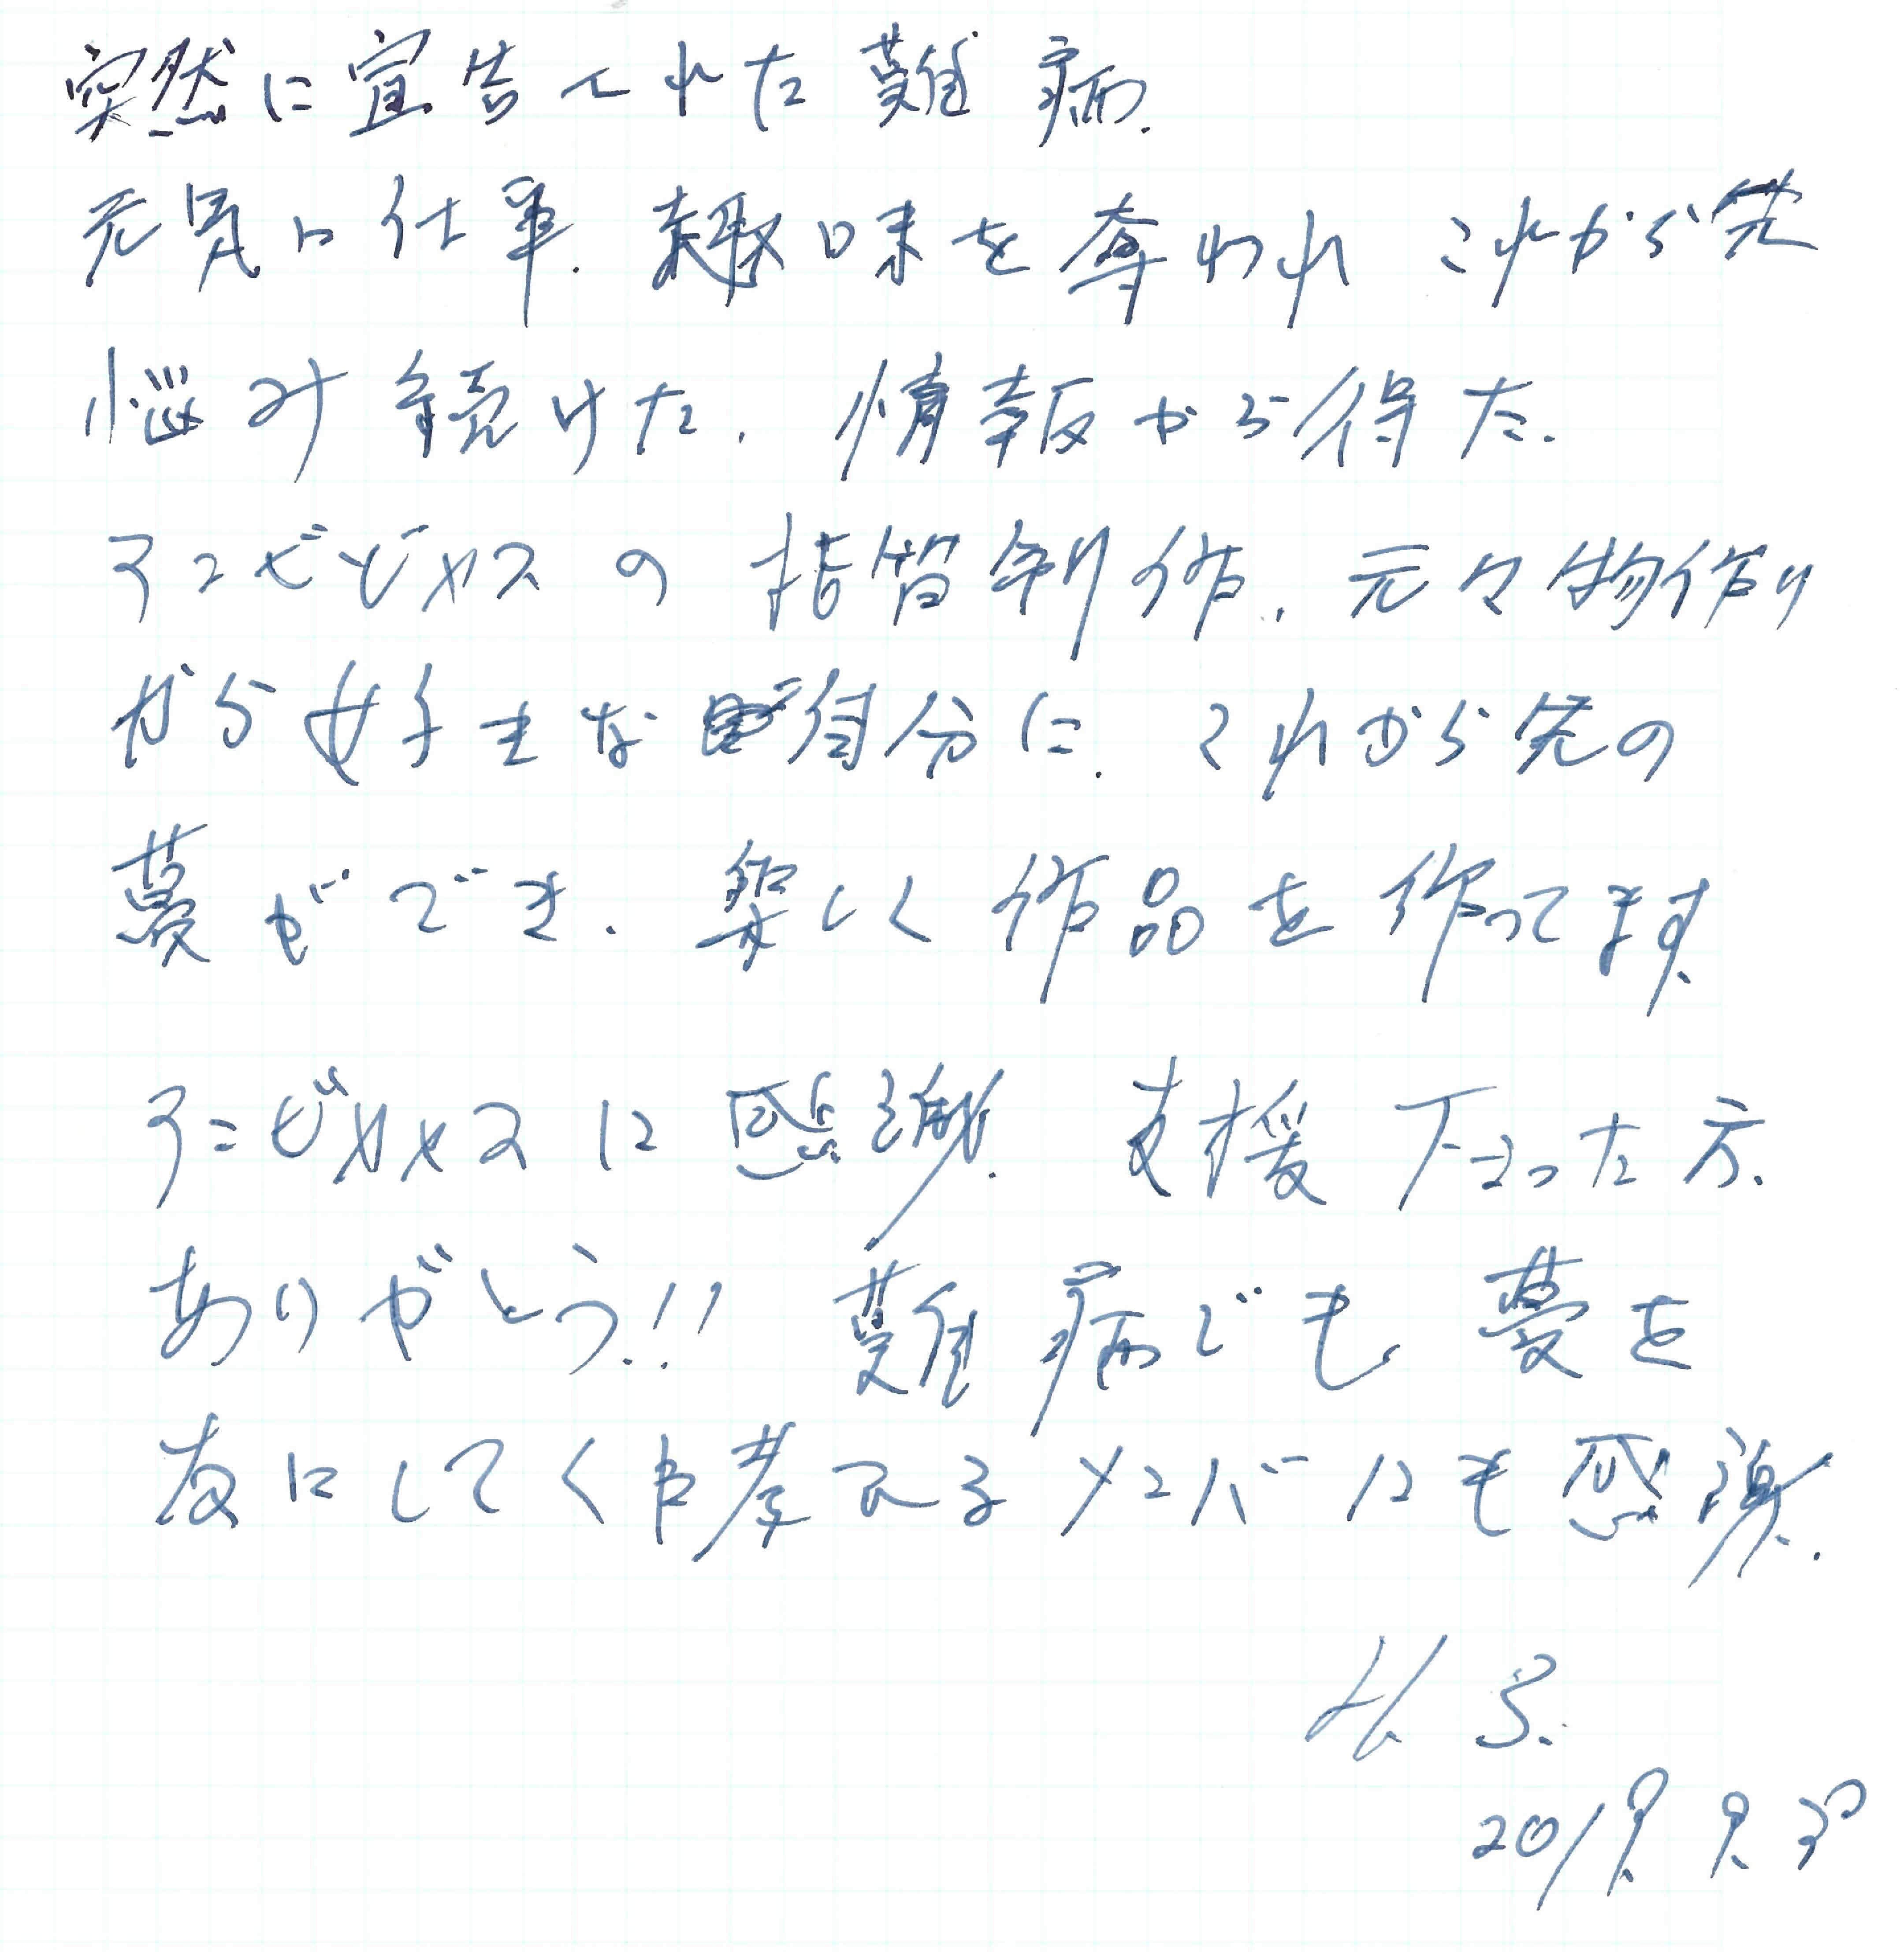 突然に宣告された難病.
元気に仕事.趣味を奪われ これから先
悩み続けた.情報から得た.
の 指笛制作.元々物作り
から好きな自分に.これから先の
夢ができ.楽しく作品を作ってます
に感謝.支援下さった方.
ありがとう!!難病でも夢を
友にしてメンバーにも感謝.
H.S.
2019.9.30